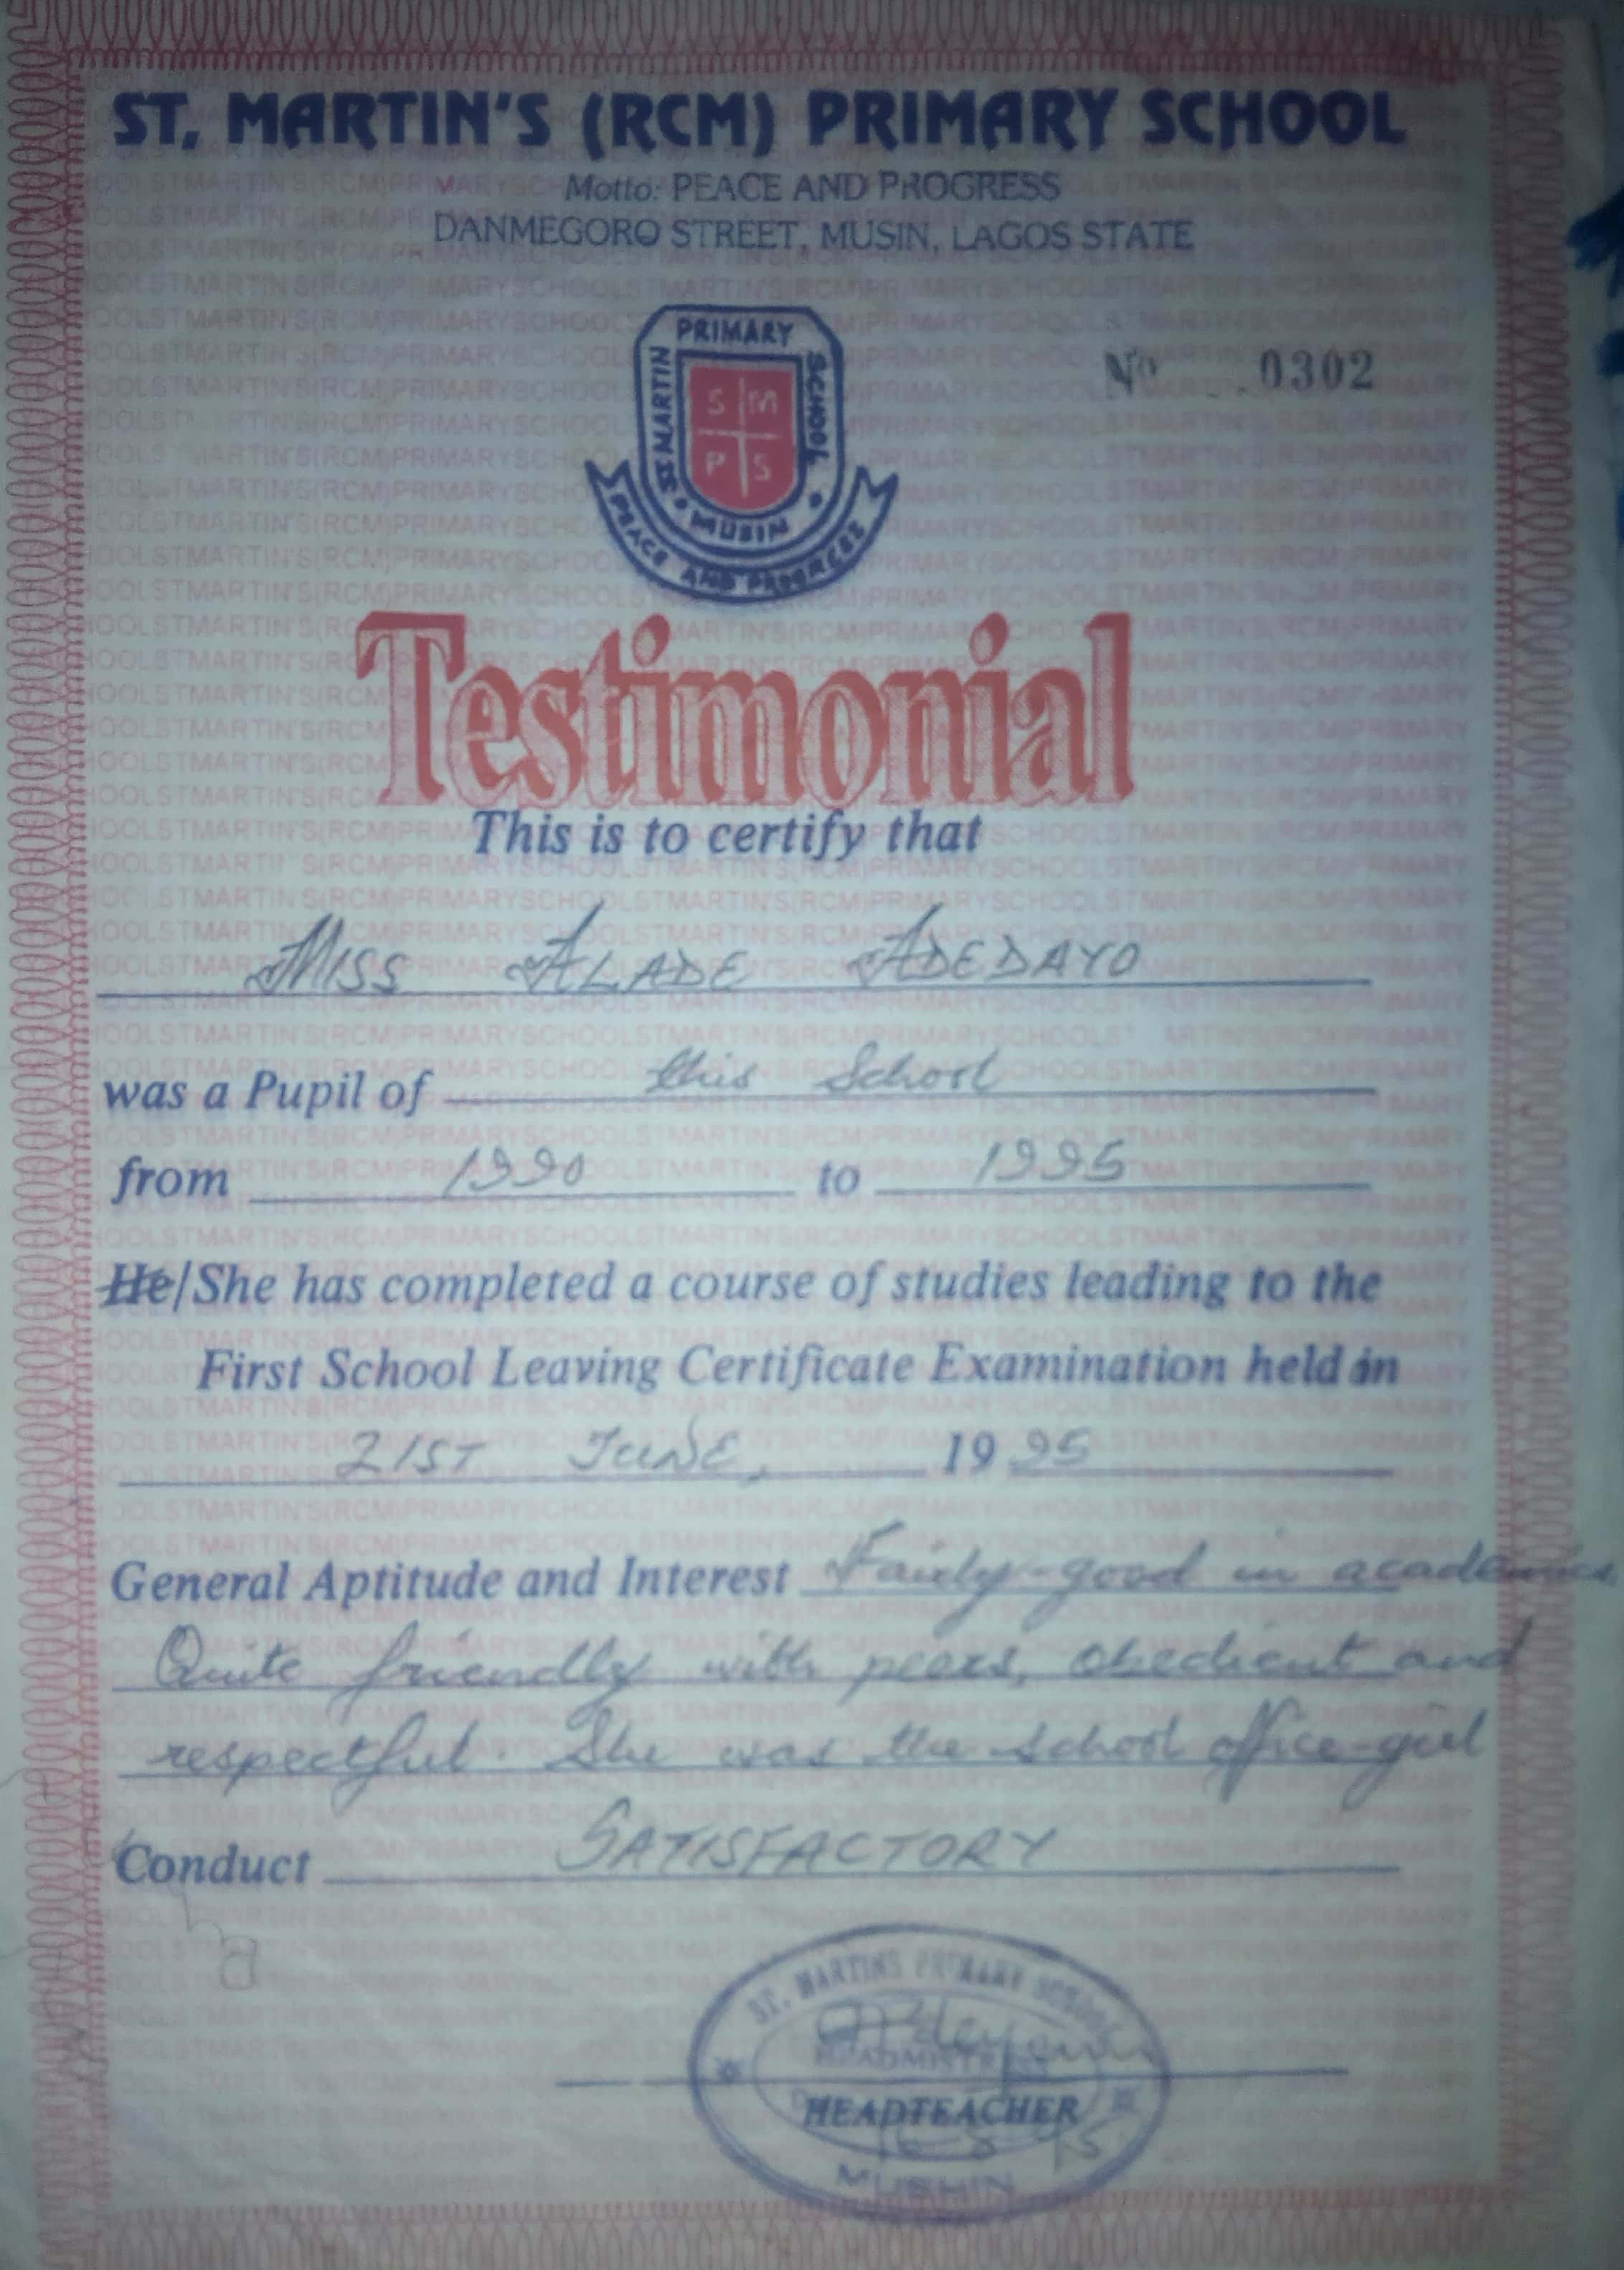 ST. MARTIN'S (RCM) PRIMARY SCHOOL
Motto: PEACE AND PROGRESS
DANMEGORO STREET, MUSIN, LAGOS STATE
PRIMARY
ST MARTIN
SCHOOL
S M
P S
MUSIN
PEACE AND PROGRESS
No 0302
Testimonial
This is to certify that
MISS ALADE ADEDAYO
was a Pupil of this School
from 1990 to 1995
He/She has completed a course of studies leading to the
First School Leaving Certificate Examination held in
21ST JUNE, 1995
General Aptitude and Interest Fairly-good in academics
Quite friendly with peers, obedient and
respectful. She was the school office-girl
Conduct SATISFACTORY
ST. MARTINS PRIMARY SCHOOL
HEADMISTRESS
HEADTEACHER
MUSHIN